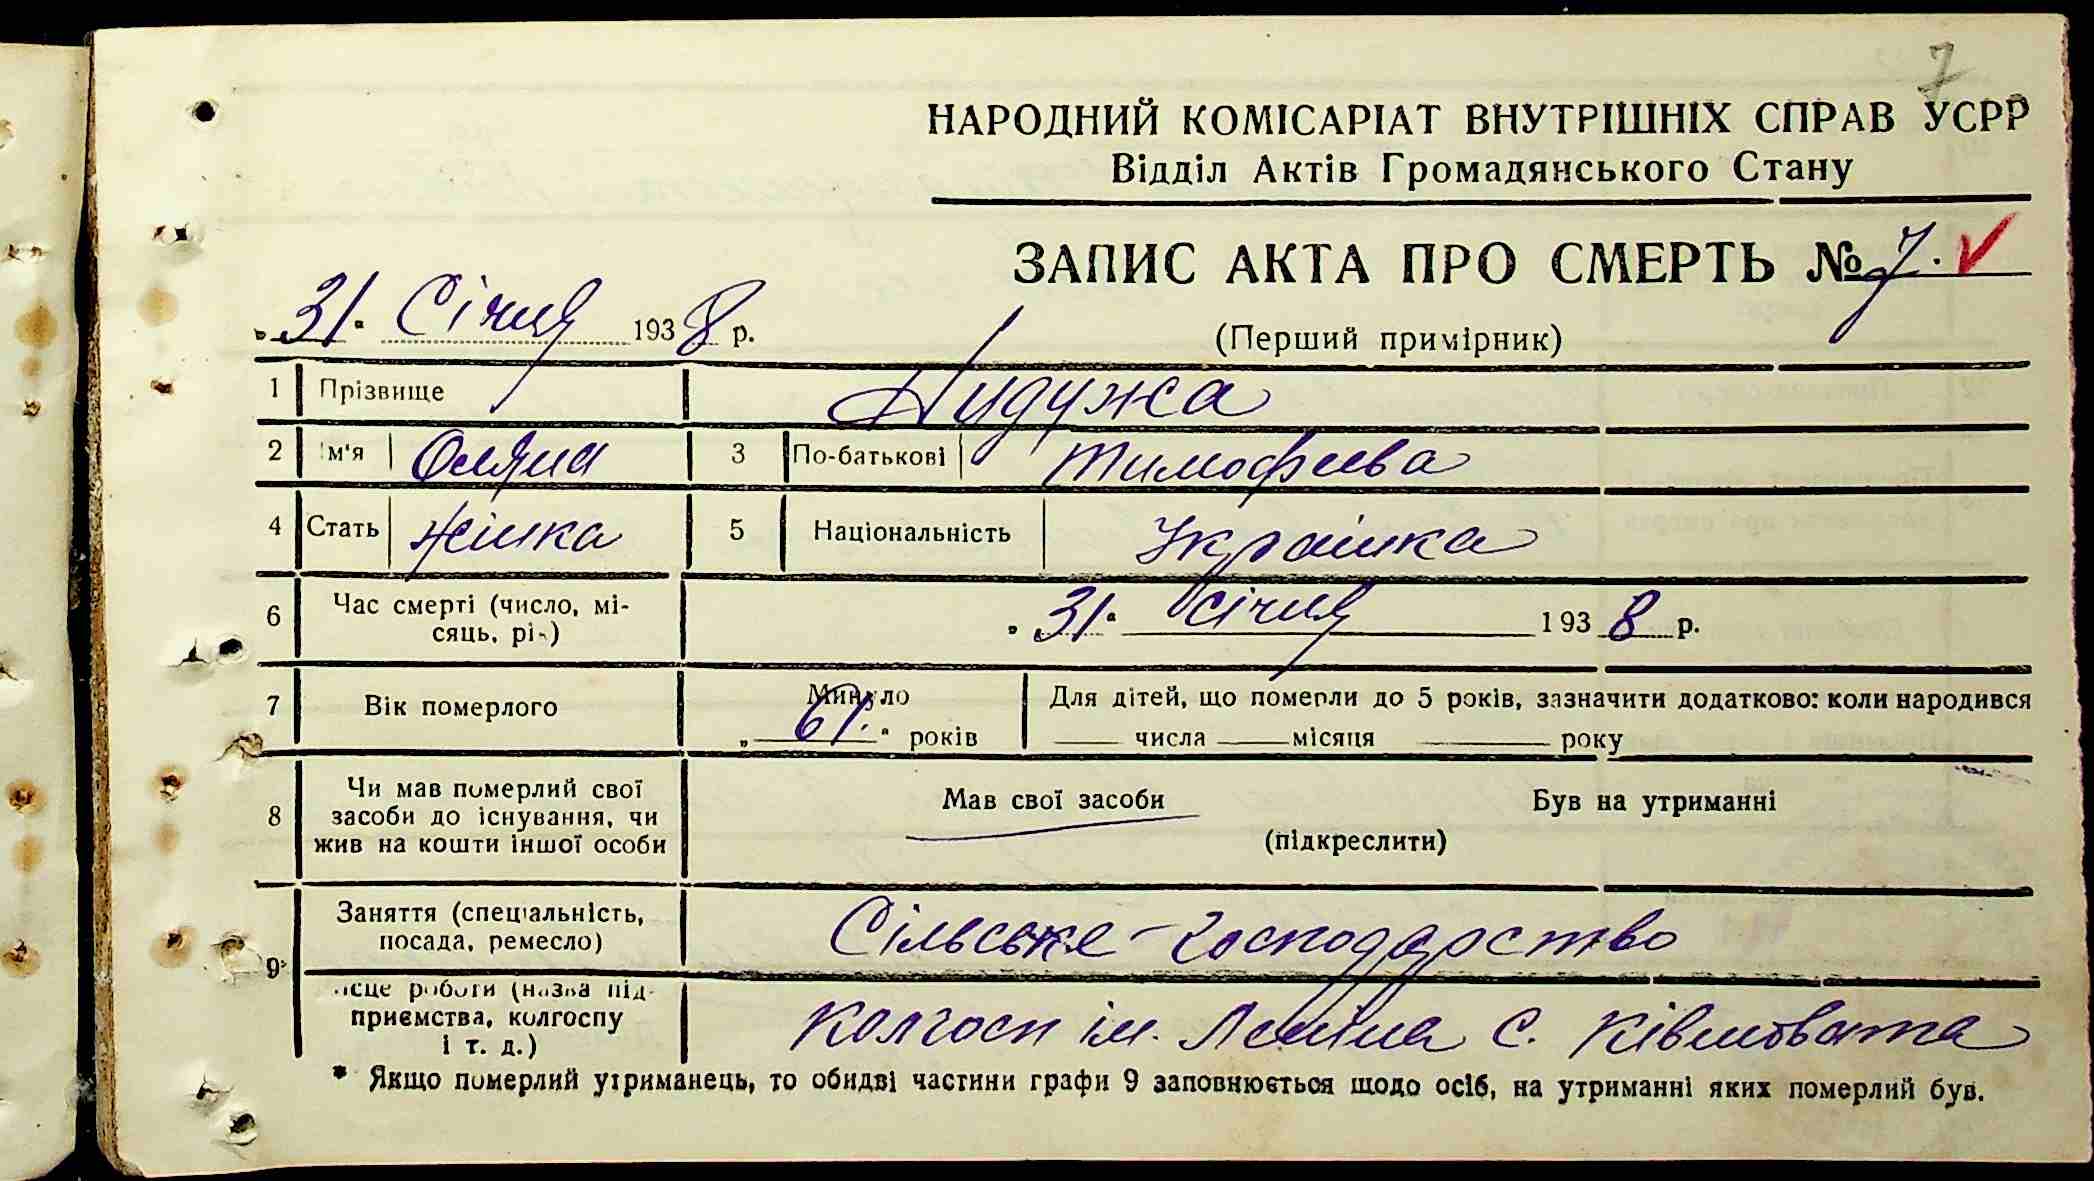 7
НАРОДНИЙ КОМІСАРІАТ ВНУТРІШНІХ СПРАВ УСРР
Відділ Актів Громадянського Стану
ЗАПИС АКТА ПРО СМЕРТЬ № 7.
„31“ Січня 1938 р.
(Перший примірник)
1 Прізвище Нидужа
2 Ім'я Оляна 3 По-батькові Тимофеева
4 Стать жінка 5 Національність Українка
6 Час смерті (число, мі-
сяць, рік) „31“ Січня 1938 р.
7 Вік померлого Минуло „61.“ років
Для дітей, що померли до 5 років, зазначити додатково: коли народився
числа місяця року
8 Чи мав померлий свої
засоби до існування, чи
жив на кошти іншої особи
Мав свої засоби Був на утриманні
(підкреслити)
9 Заняття (спеціальність,
посада, ремесло) Сільське-господарство
Місце роботи (назва під-
приємства, колгоспу
і т. д.) Колгосп ім. Леніна с. Ківшовата
* Якщо померлий утриманець, то обидві частини графи 9 заповнюється щодо осіб, на утриманні яких померлий був.